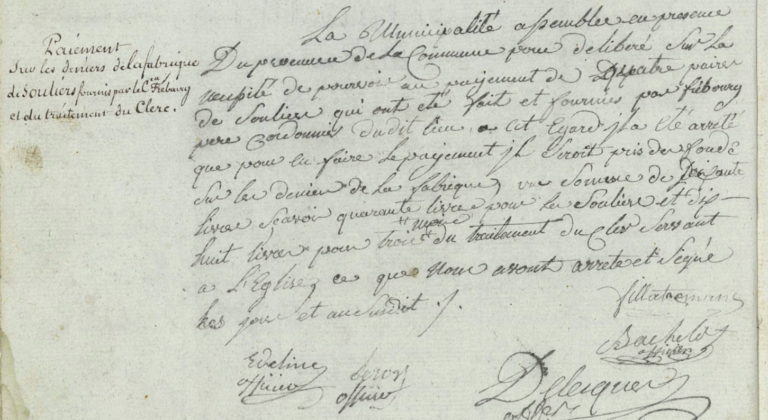 Paiement
Sur les deniers de la fabrique
de Souliers fournis par le Cen Fribourg
et du traitement du Clerc.
La Municipalité assemblée en presence
Du procureur de la Commune pour deliberé Sur La
necessité de pourvoir au payement de quatre paires
de Souliers qui ont été fait et fournies par fribourg
pere Cordonnié dudit lieu, a cet Egard jl a Eté arrêté
que pour en faire le payement jl Seroit pris du fonds
Sur les denier de La fabrique, une Somme de
livres Scavoir quarante livre pour les Souliers et dix
huit livres pour trois mois du traitement du Clerc Servant
a L'Eglise, ce que Nous avont arrêté et Signé
les jour et an Susdit ./.
Villatremin
Bachelot
officier
Eveline
officier
officier
Delecques